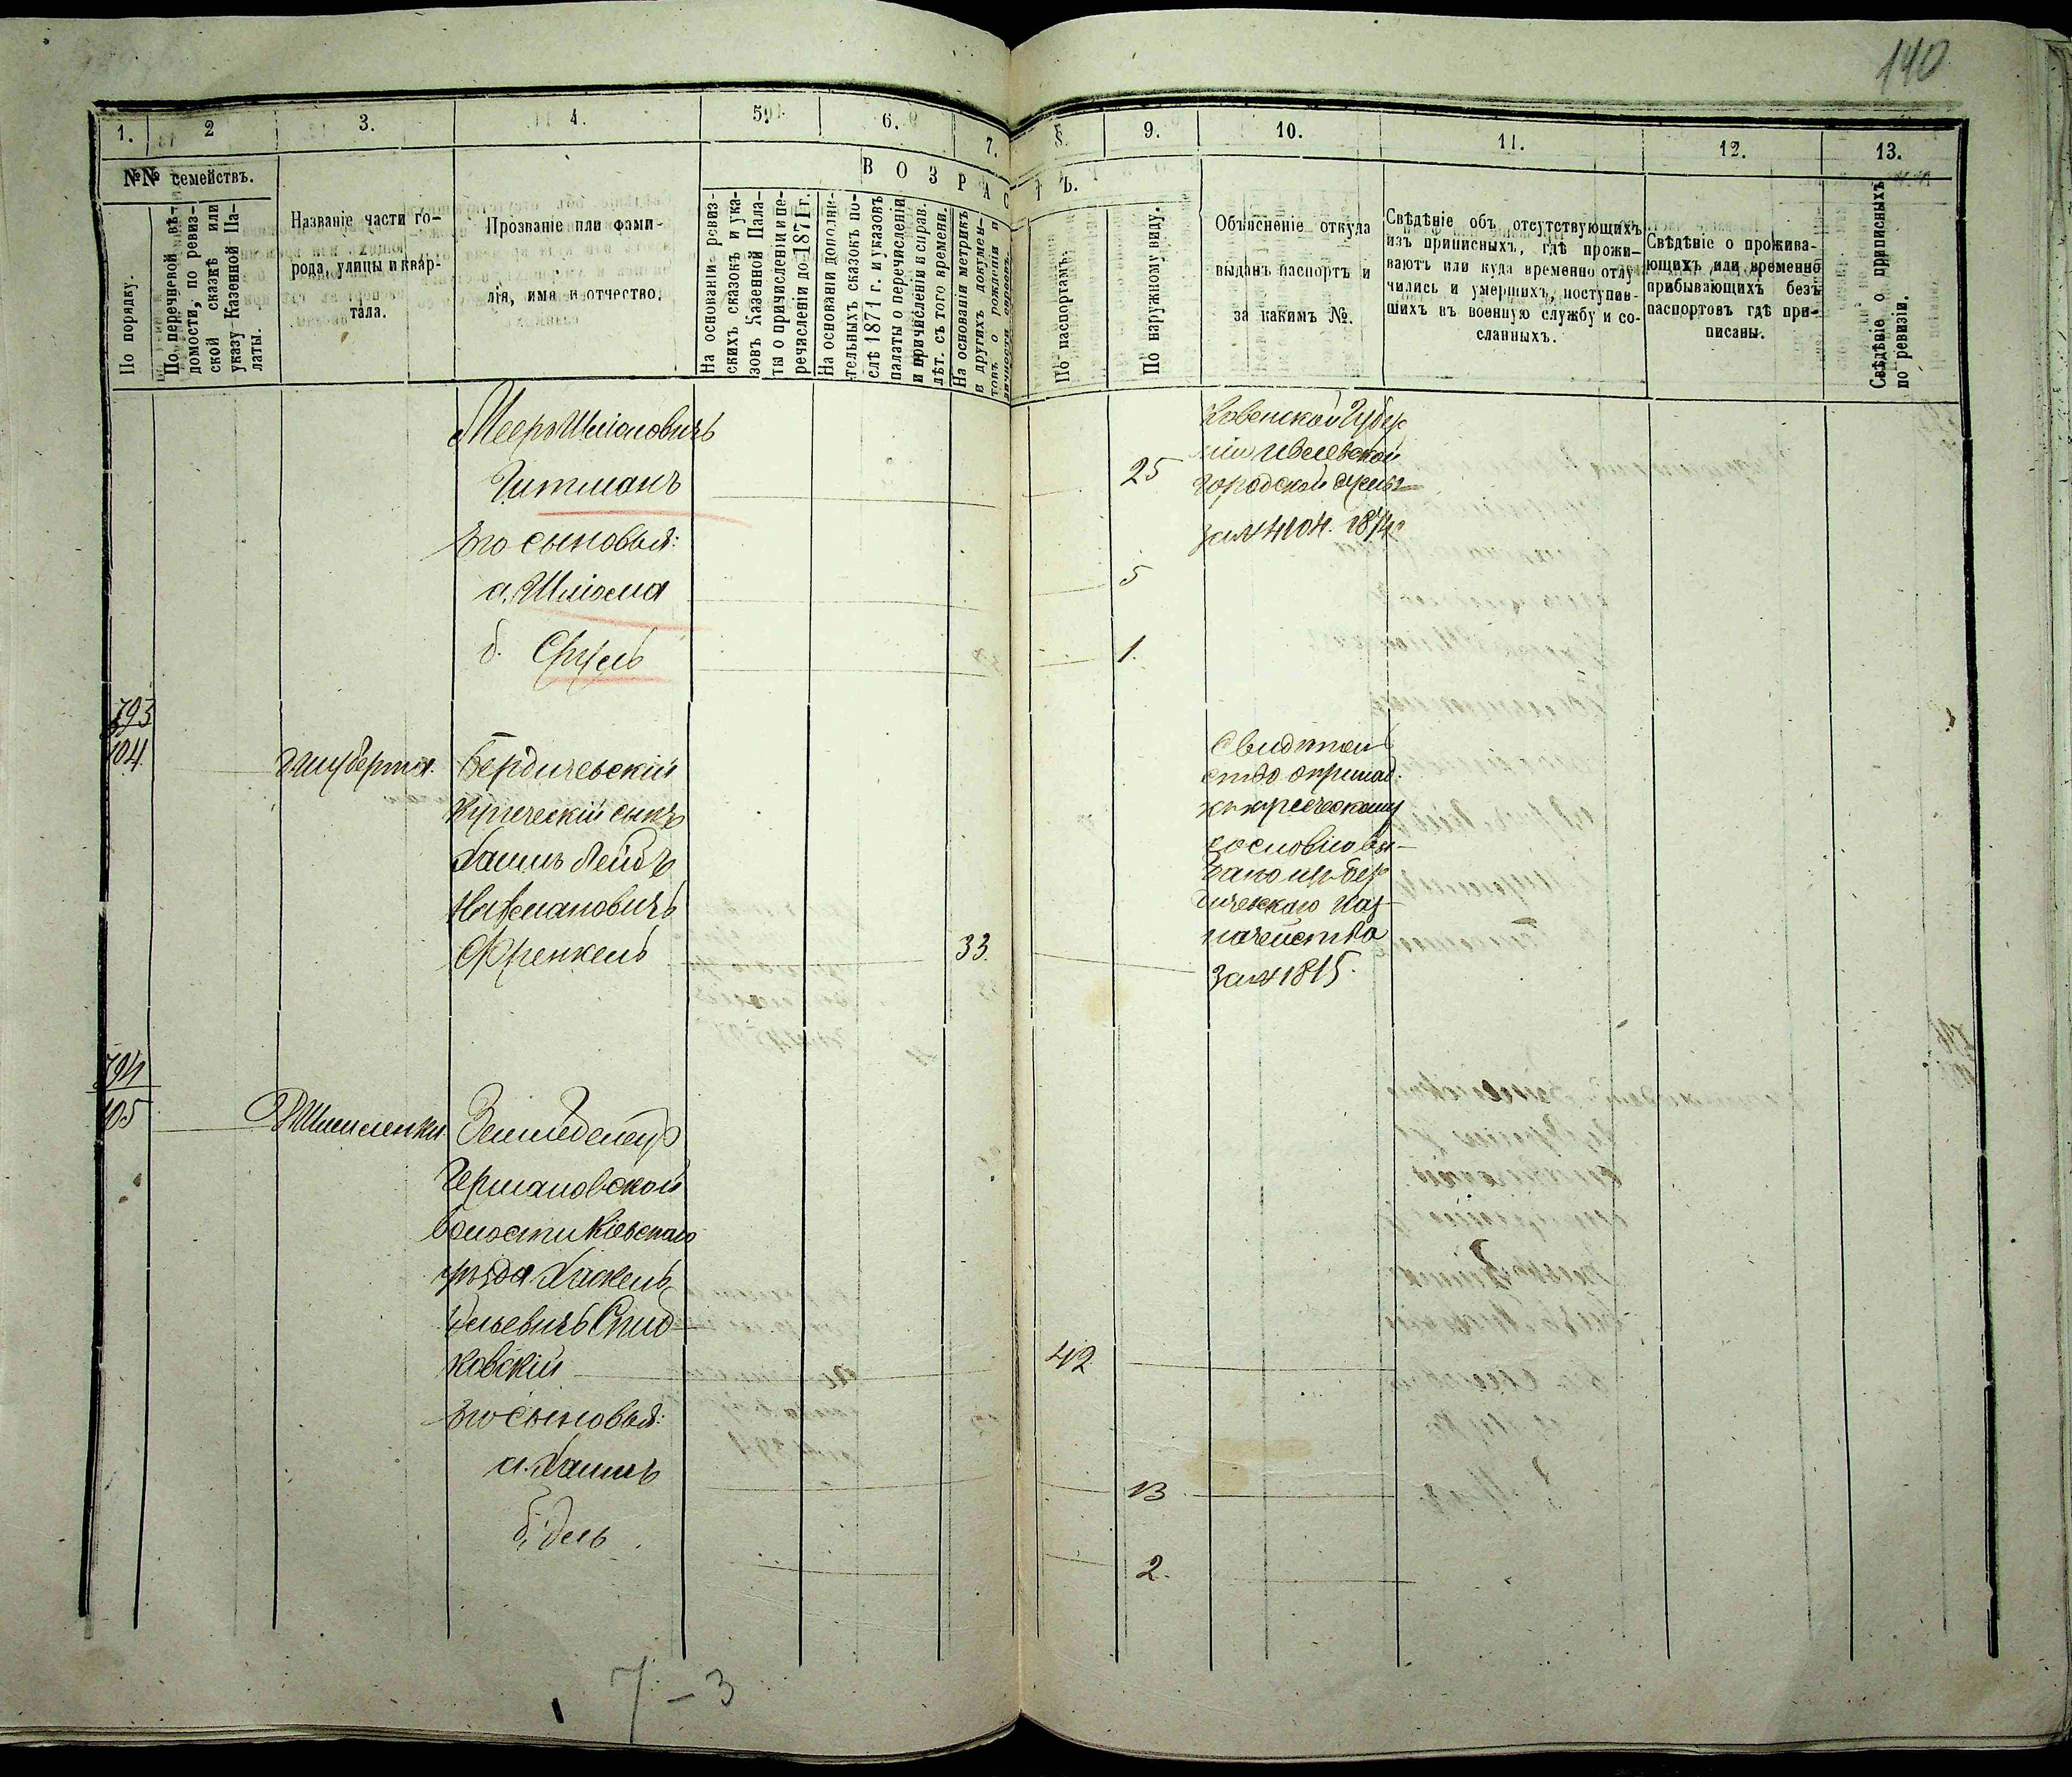 140
1. 2 3. 4. 5. 6. 7. 8. 9. 10. 11. 12. 13.
№№ семействъ.
По порядку.
По перечневой вѣ-
домости, по ревиз-
ской сказкѣ или
указу Казенной Па-
латы.
Названіе части го-
рода, улицы и квар-
тала.
Прозваніе или фами-
лія, имя и отчество.
ВОЗРАСТЪ.
На основаніи ревиз-
скихъ сказокъ и ука-
зовъ Казенной Пала-
ты о причисленіи и пе-
речисленіи до 1871 г.
На основаніи дополни-
тельныхъ сказокъ по-
слѣ 1871 г. и указовъ
палаты о перечисленіи
и причисленіи в справ.
лѣт. съ того времени.
На основаніи метрикъ
и другихъ докумен-
товъ о рожденіи и
По паспортамъ.
По наружному виду.
Объясненіе откуда
выданъ паспортъ и
за какимъ №.
Свѣдѣніе объ отсутствующихъ
изъ приписныхъ, гдѣ прожи-
ваютъ или куда временно отлу-
чились и умершихъ, поступив-
шихъ въ военную службу и со-
сланныхъ.
Свѣдѣніе о прожива-
ющихъ или временно
прибывающихъ безъ
паспортовъ гдѣ при-
писаны.
Свѣдѣніе о приписныхъ
по ревизіи.
Мееръ Шліомовичъ
Гитманъ
25
Его сыновья:
а. Шліома
5
б. Сруль
1.
Ковенской Губер
ніи
городской
за № 4104. 187
793
104
Бердичевскій
купеческій сынъ
Хаимъ Лейбъ
Нахмановичъ
Френкель
33.
Свидѣтель
ство о принад:
къ купеческому
сословію вы-
дано изъ Бер
дичевскаго каз-
начейства
за № 1815.
794
105
Земледелецъ
Германовской
волости Кіевскаго
уѣзда Хаскель
Спид-
ковскій
42
Его сыновья:
а. Хаимъ
13
б. Дель
2.
7-3